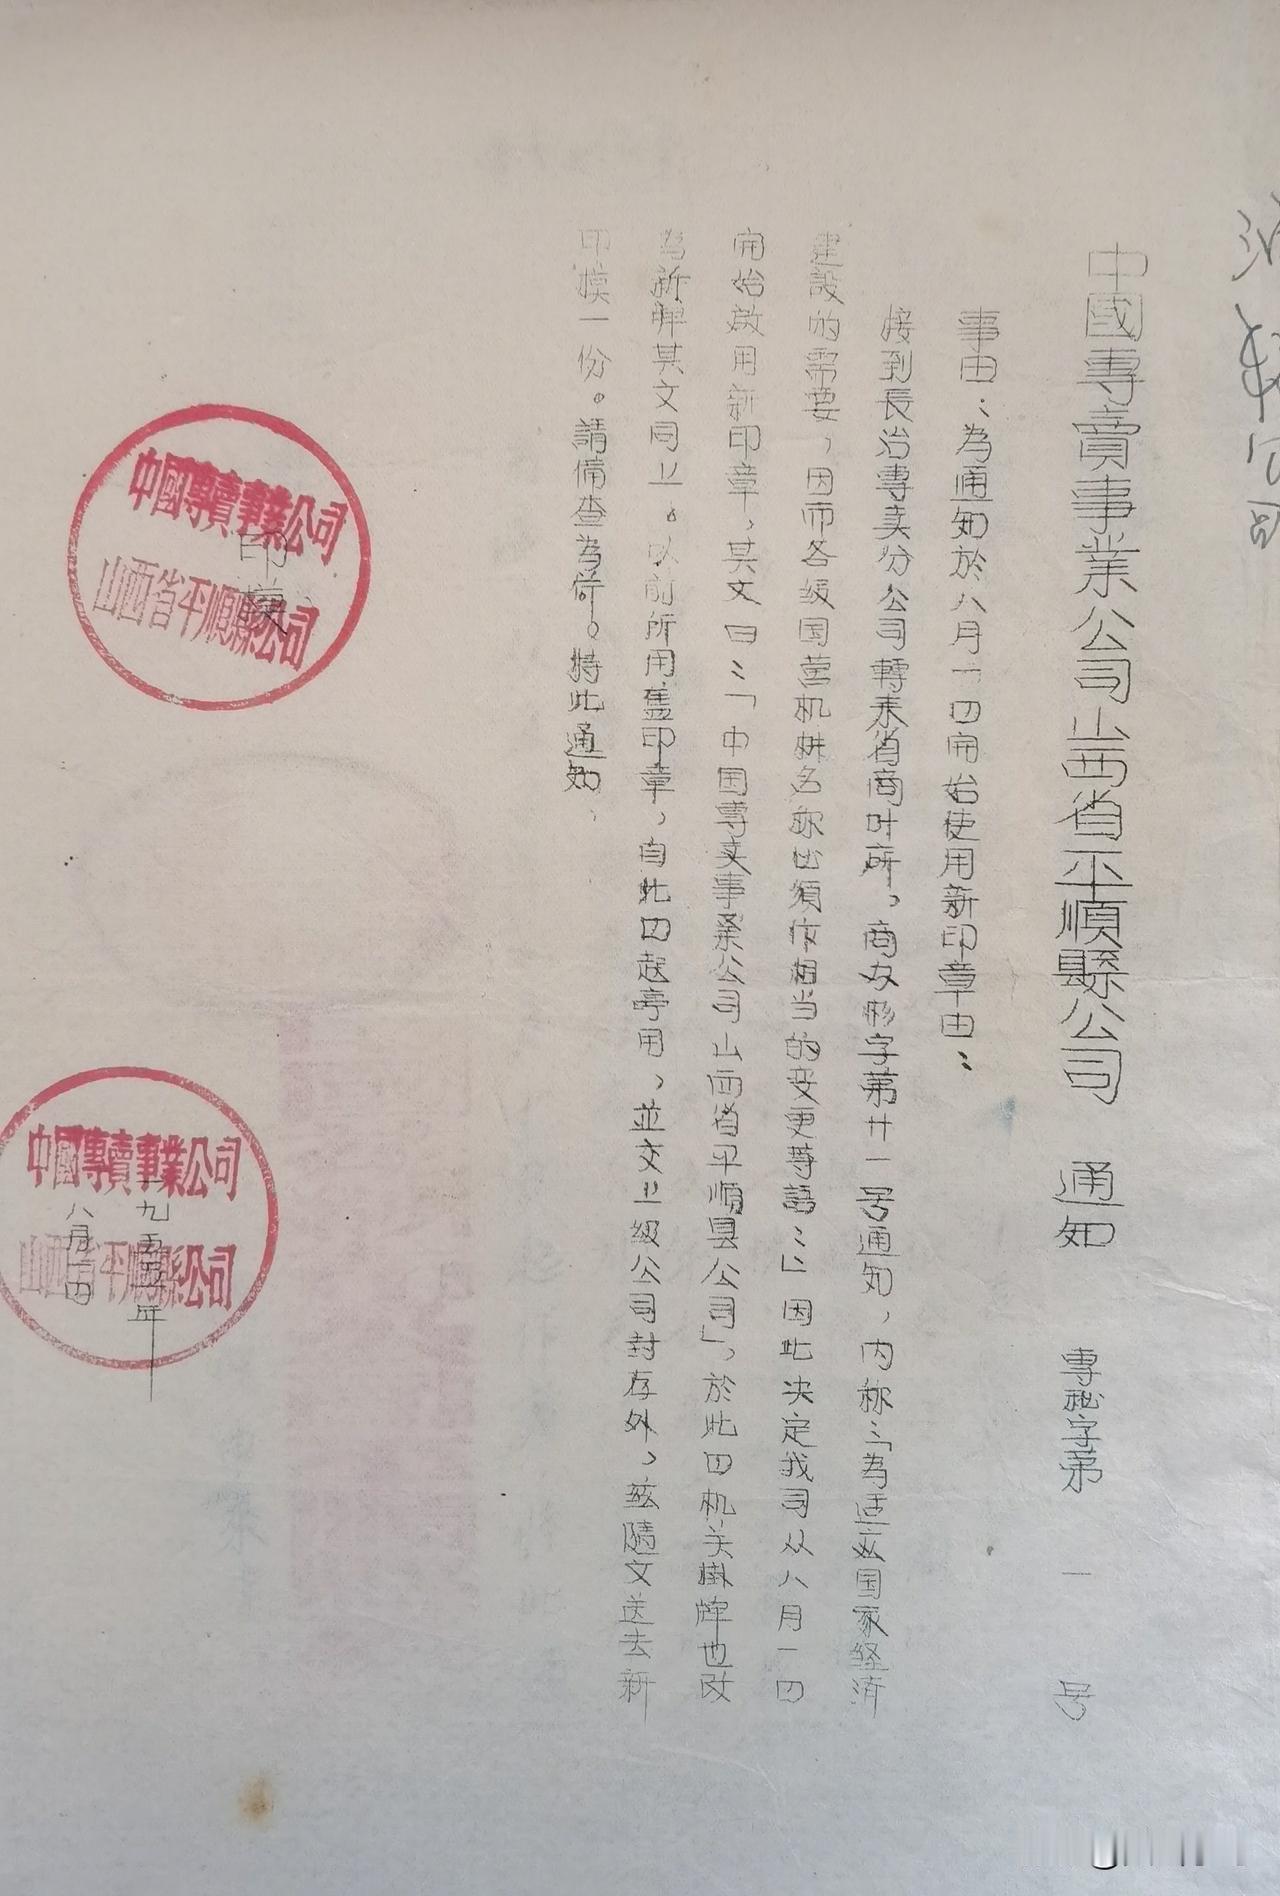 中國專賣事業公司山西省平順縣公司 通知 專祕字第 一 号
事由：為通知於八月一日開始使用新印章由：
接到長治專卖分公司轉来省商叶所，商办形字第廿一号通知，内称：「為适应国家經济
建設的需要，因而各級国营机構名称也須作相当的变更等語：」因此决定我司从八月一日
開始啟用新印章，其文曰：「中国專卖事業公司山西省平順县公司」，於此日机关掛牌也改
為新牌其文同上。以前所用舊印章，自此日起停用，並交上級公司封存外，茲隨文送去新
印模一份。請備查為荷。特此通知、
印模
中國專賣事業公司
山西省平順縣公司
一九五五年
八月一日
中國專賣事業公司
山西省平順縣公司
公司